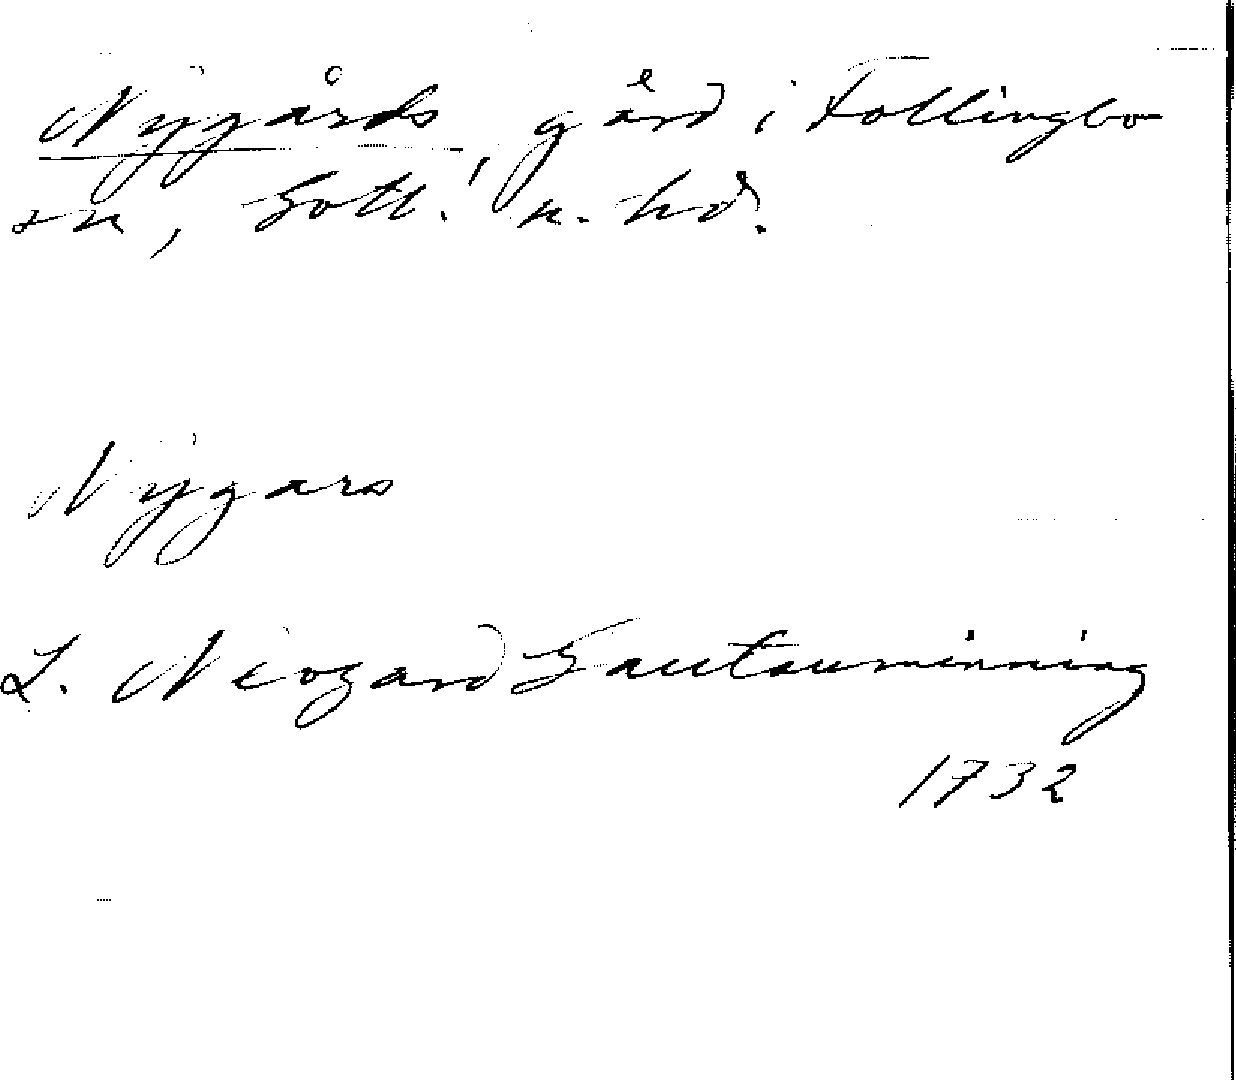 Nygårds, gård i Follingbo
sn, Gotl. n. hd.
Nÿgars
L. Neogard Gautauminning
1732